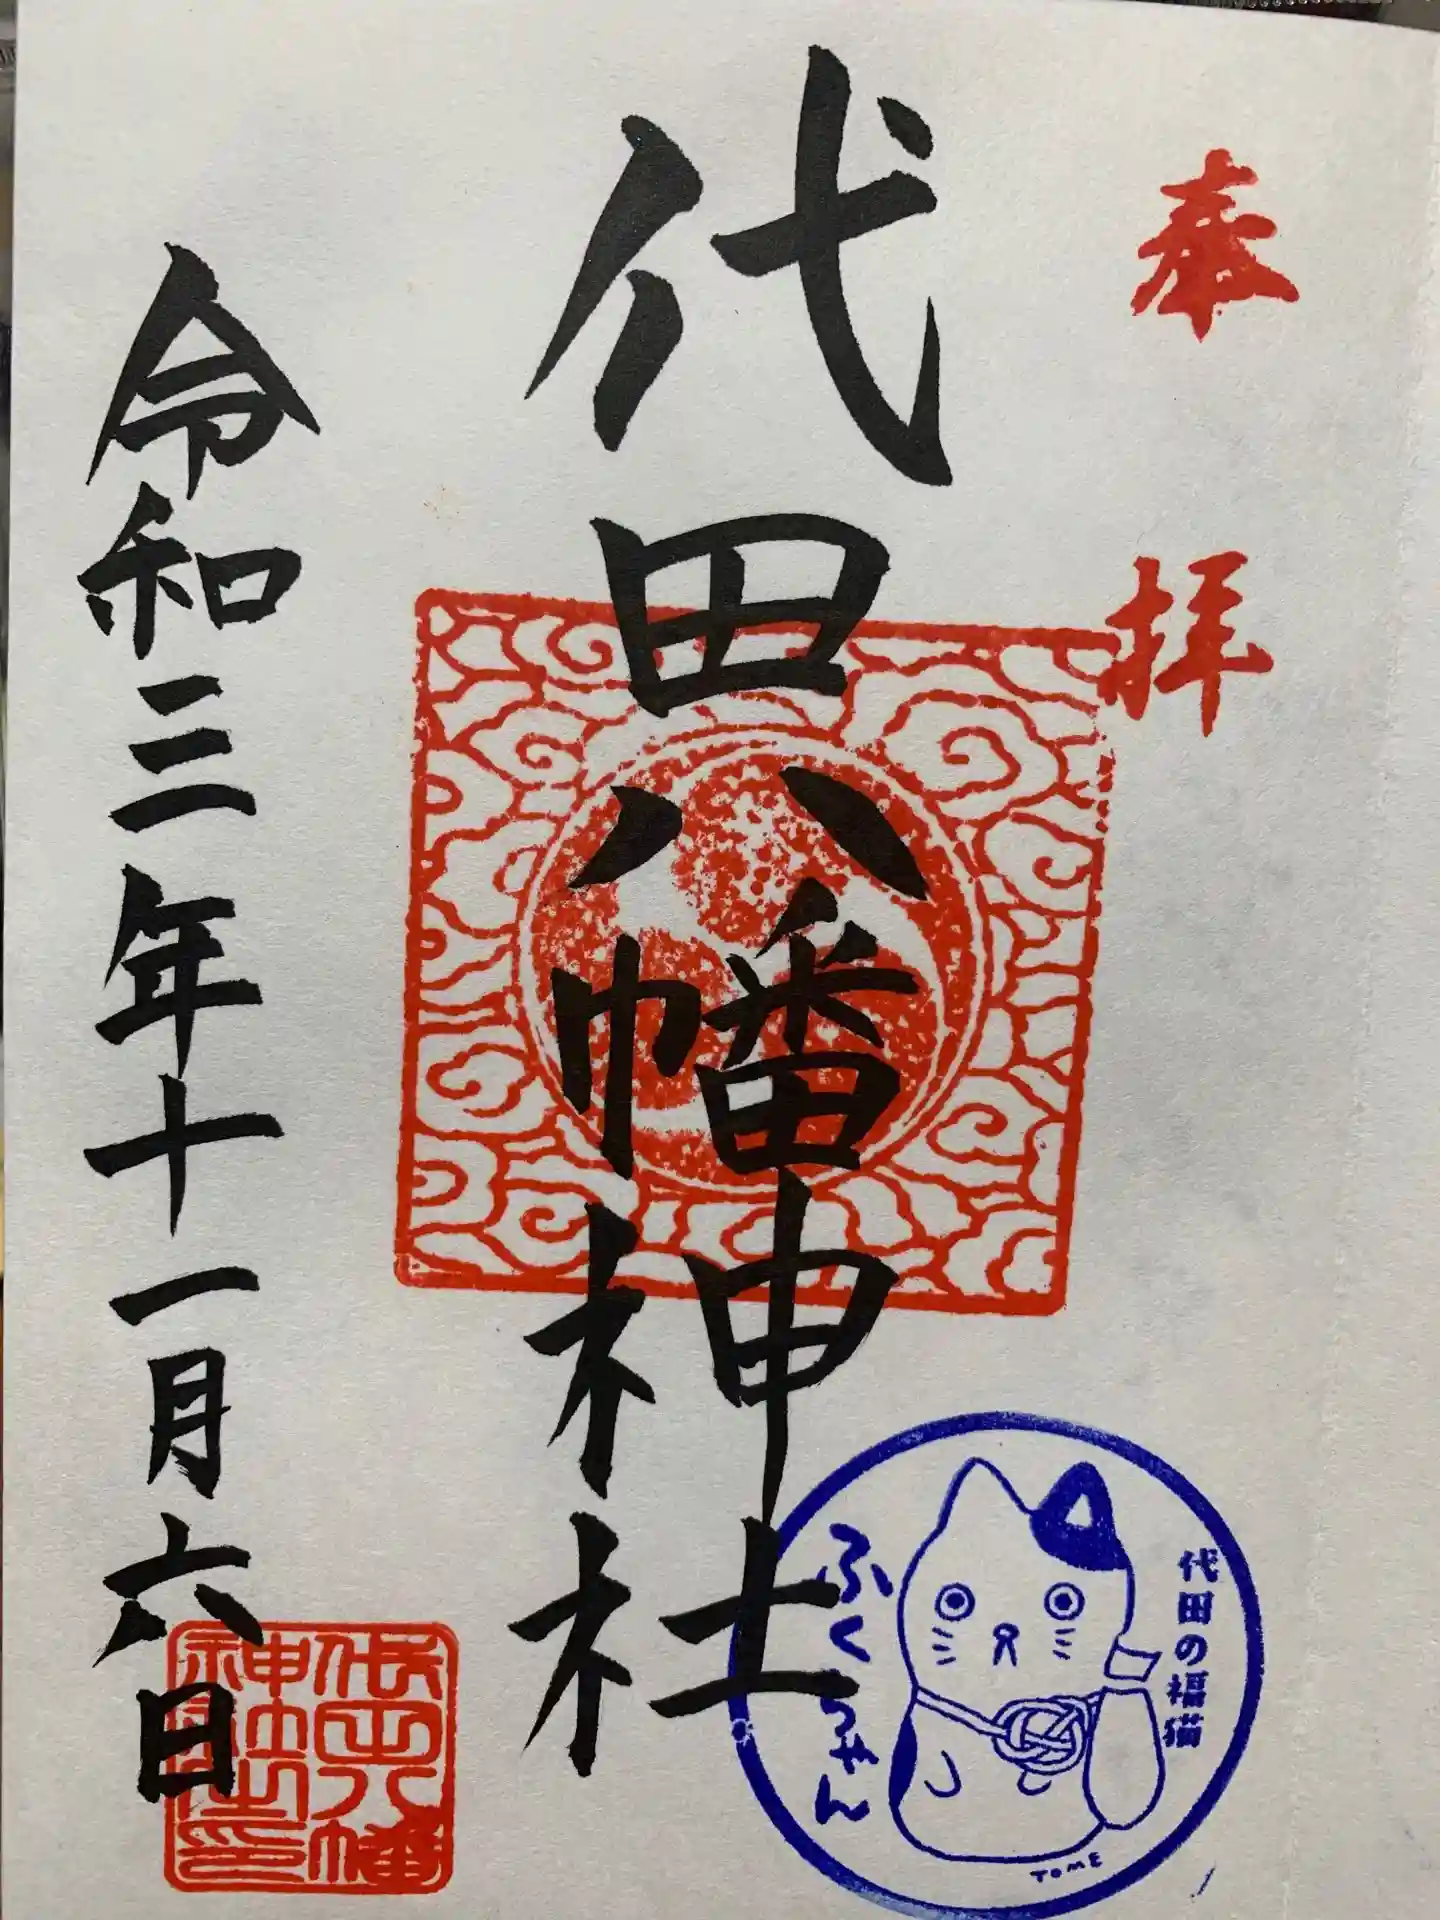 奉拝
代田八幡神社
令和三年十一月六日
代田八幡
神社之印
代田の福猫
ふくちゃん
TOME